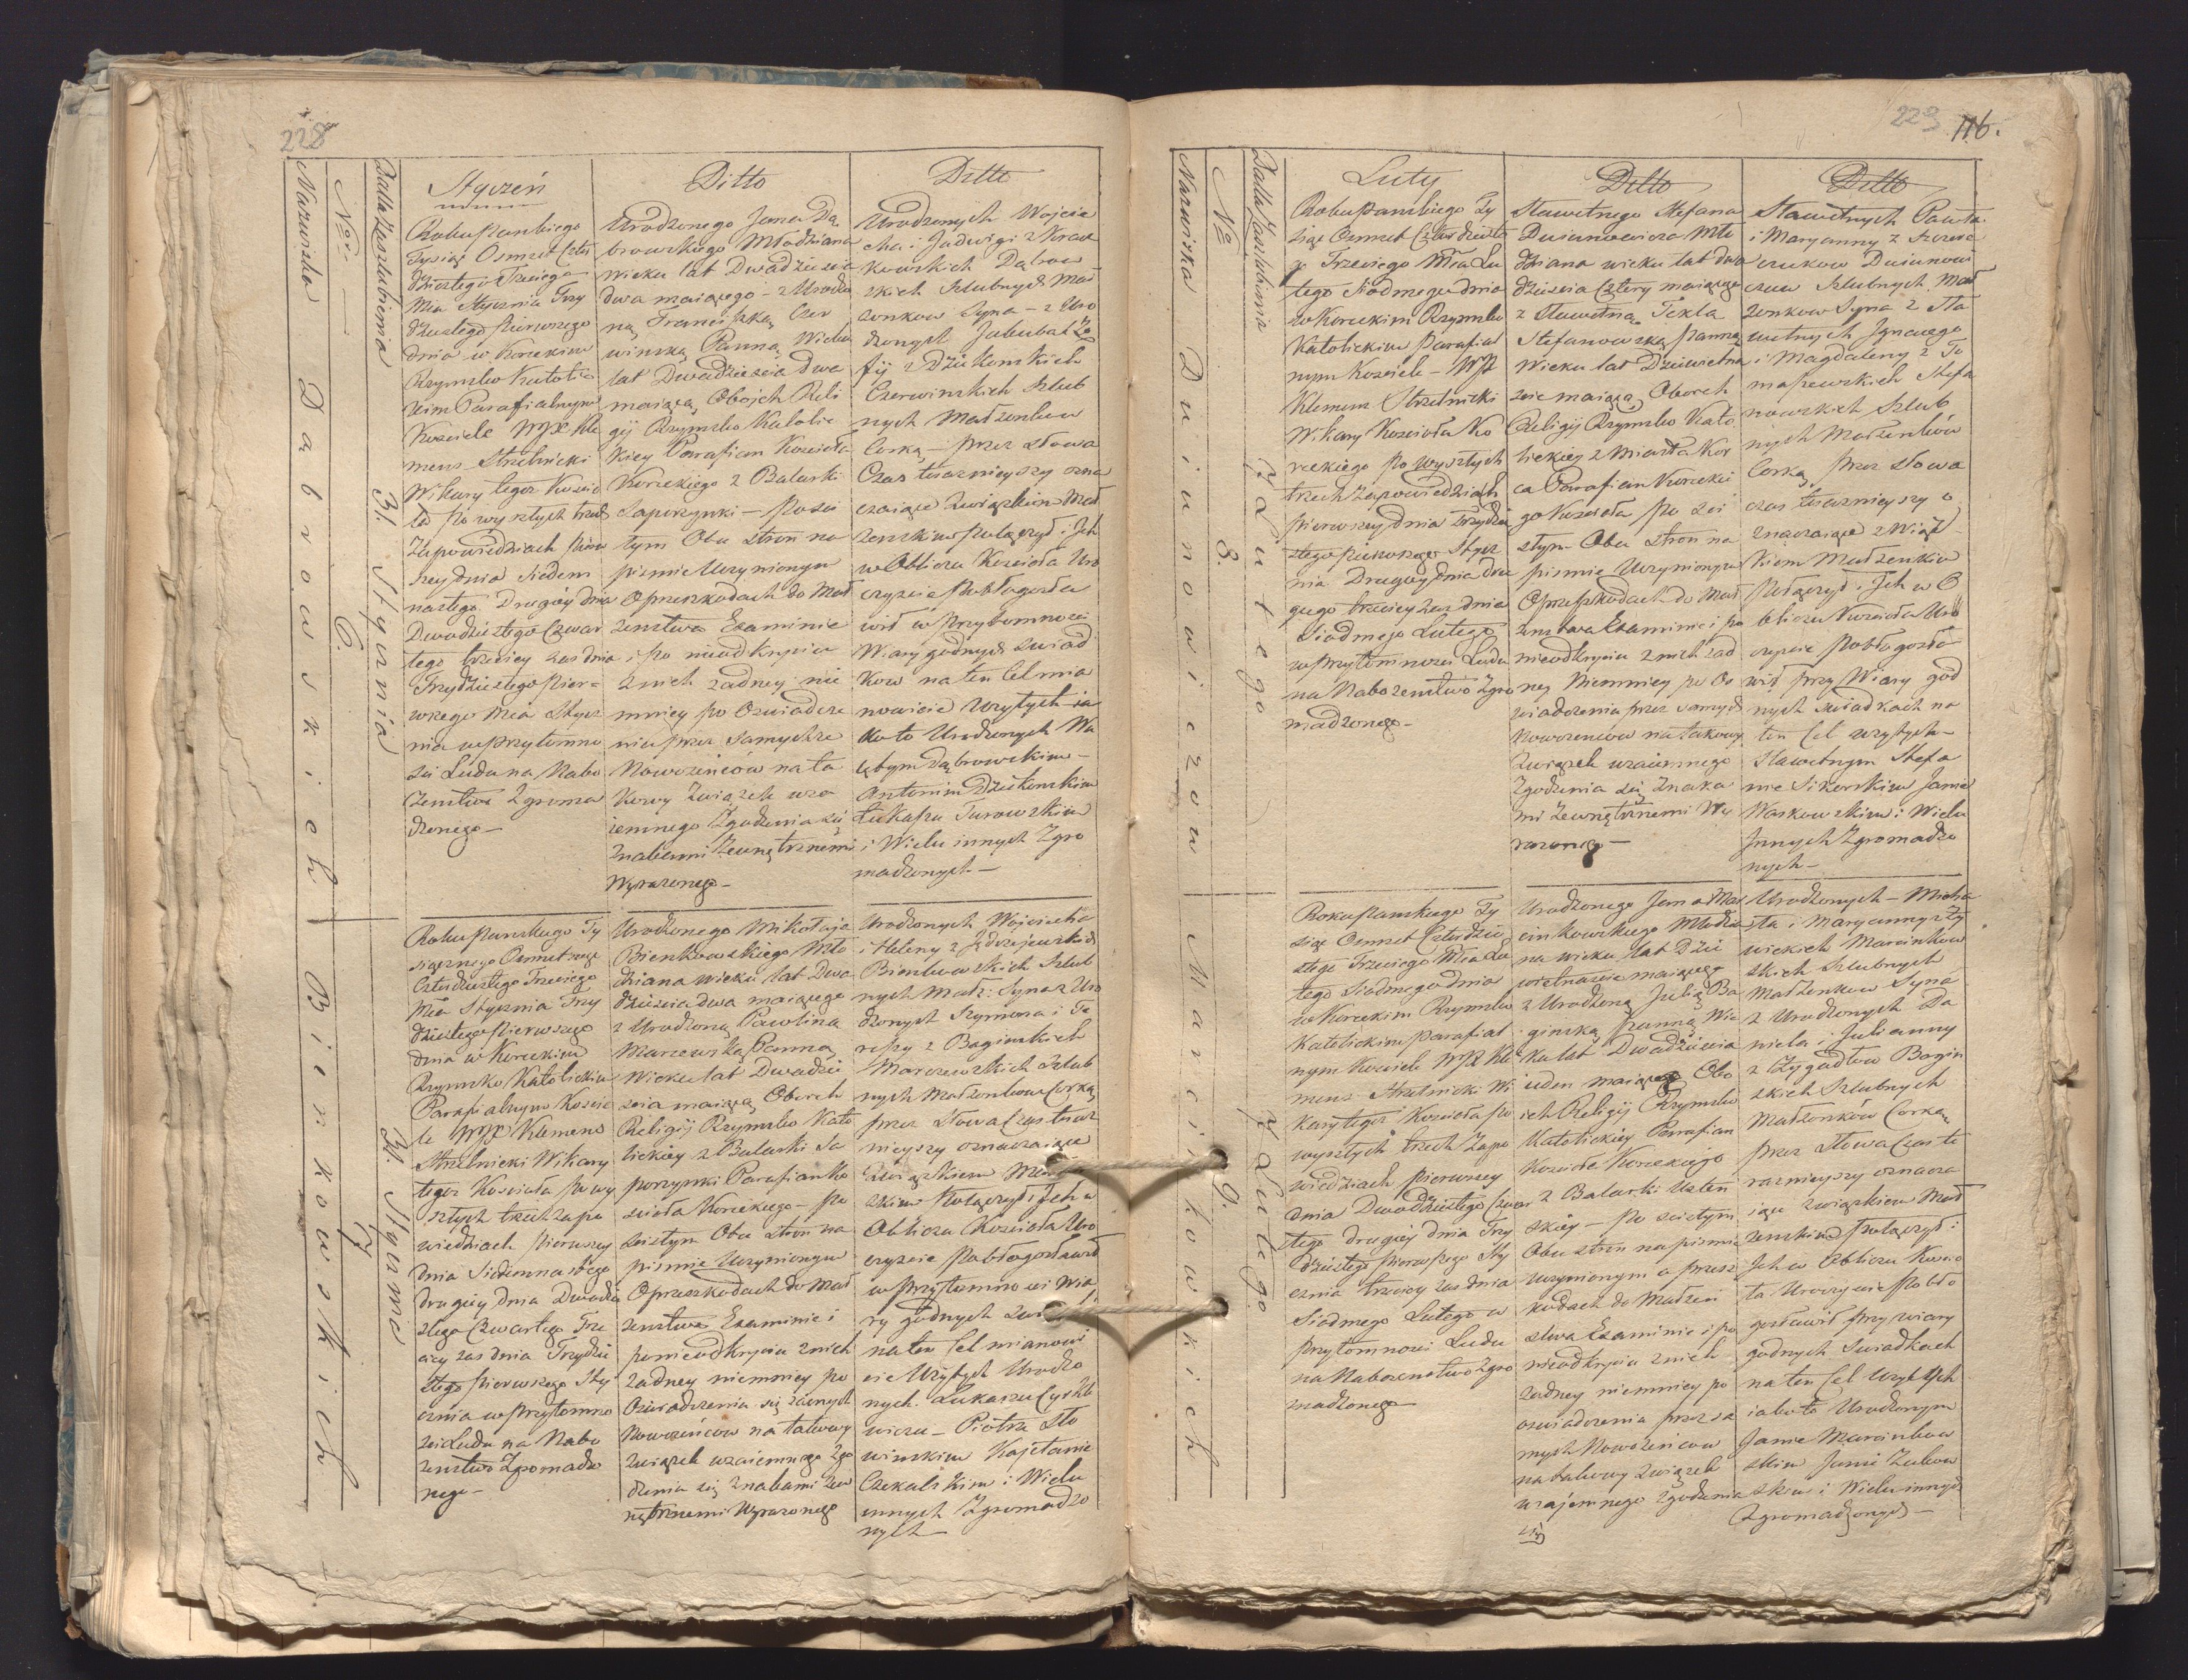 228
Nazwiska
Dąbrowskich
Bienkowskich
No
6.
7.
Datta Zaszlubienia
31. Stycznia
31. Stycznia
Styczeń
Roku Panskiego
Tysiąc Osmset Czter
dziestego Trzeciego
Mca Stycznia Trzy
dziestego Pierwszego
dnia w Koreckim
Rzymsko Katolic
kim Parafialnym
Kosciele WJX Kle
mens Strzelnicki
Wikary tegoż Koscio
ła po wyszłych trzech
Zapowiedziach Pierw
szey dnia Siedem
nastego Drugiey dnia
Dwudziestego Czwar
tego trzeciey zas dnia
Trzydziestego Pier=
wszego Mca Stycz
nia w przytomno
sci Ludu na Nabo
żenstwo Zgroma
dzonego –
Ditto
Urodzonego Jana Dą
browskiego Młodziana
wieku lat Dwadziescia
dwa maiącego – z Urodzo
ną Franciszką Czer
winską Panną Wieku
lat Dwadziescia dwa
maiącą Oboich Reli
gij Rzymsko Katolic
kiey Parafian Kościoła
Koreckiego z Balarki
Saporzynki – Po sci
słym Obu stron na
pismie Uczynionym
O przeszkodach do Mał
żenstwa Examinie
i po nieodkryciu
z nich żadney nie
mniey po Oswiadcze
niu przez samychże
Nowożeńcow na ta
kowy Związek wza
iemnego Zgodzenia się
Znakami Zewnętrznemi
Wyrażonego –
Ditto
Urodzonych Wojcie
cha i Jadwigi z Kracz
kowskich Dąbrow
skich Szlubnych Mał
żonkow Syna – z Uro
dzonych Jakuba i Zo
fij z Dzikonskich
Czerwinskich Szlub
nych Małżonkow
Corką – przez słowa
Czas teraznieyszy ozna
czaiące Związkiem Mał
żenskim Połączył i Ich
w Obliczu Kościoła Uro
czyscie Pobłogosła
wił w przytomnosci
Wiary godnych Swiad
kow na ten Cel mia
nowicie Użytych ia
ko to Urodzonych Wa
lętym Dąbrowskim –
Antonim Dzikonskim
Łukaszu Turowskim
i Wielu innych Zgro
madzonych –
Roku Panskiego Ty
siącznego Osmsetnego
Czterdziestego Trzeciego
Mca Stycznia Trzy
dziestego Pierwszego
dnia w Koreckim
Rzymsko Katolickim
Parafialnym Koscie
le WJX Klemens
Strzelnicki Wikary
tegoż Kościoła po wy
szłych trzech zapo
wiedziach pierwszey
dnia Siedemnastego
drugiey dnia Dwudzie
stego Czwartego Trze
ciey zas dnia Trzydzie
stego Pierwszego Sty
cznia w przytomno
sci Ludu na Nabo
żenstwo Zgromadzo
nego –
Urodzonego Mikołaja
Bienkowskiego Mło
dziana wieku lat Dwa
dziescia dwa maiącego
z Urodzoną Pawliną
Marczewską Panną
Wieku lat Dwadzie
scia maiącą Oboich
Religij Rzymsko Kato
lickiey z Balarki Sa
porzynki Parafian Ko
scioła Koreckiego – po
scisłym Obu stron na
pismie Uczynionym
O przeszkodach do Mał
żenstwa Examinie i
po nieodkryciu z nich
żadney niemniey po
Oswiadczenia się samych
Nowożeńcow na takowy
związek wzaiemnego Zgo
dzenia się znakami zew
nętrznemi Wyrażonego
Urodzonych Wojciecha
i Heleny z Jędrzejewskich
Bienkowskich Szlub
nych Małż: Syna z Uro
dzonych Szymona i Te
ressy z Baginskich
Marczewskich Szlub
nych Małżonkow Corką
przez Słowa Czas teraz
nieyszy oznaczaiące
Związkiem Małżen
skim Połączył i Ich w
Obliczu Kościoła Uro
czyscie Pobłogosławił
w przytomnosci Wia
ry godnych
na ten Cel mianowi
cie Użytych Urodzo
nych. Łukaszu Cyrkle
wiczu – Piotrze Sło
winskim Kajetanie
Czekalskim i Wielu
innych Zgromadzo
nych –
223 116.
Nazwiska
Duiunowiczow
Marcinkowskich
No
8.
9.
Datta Zaszlubienia
7 Lutego.
7 Lutego.
Luty
Roku Panskiego Ty
siąc Osmset Czterdzieste
go Trzeciego Mca Lu
tego Siodmego dnia
w Koreckim Rzymsko
Katolickim Parafial
nym Kosciele – WJX
Klemens Strzelnicki
Wikary Kościoła Ko
reckiego po wyszłych
trzech Zapowiedziach
pierwszey dnia Trzydzie
stego pierwszego Stycz
nia Drugiey dnia dru
giego trzeciey zas dnia
Siodmego Lutego
w przytomnosci Ludu
na Nabożenstwo Zgro
madzonego –
Ditto
Sławetnego Stefana
Duiunowicza Mło
dziana wieku lat dwa
dziescia Cztery maiącego
z Sławetną Teklą
Stefanowską Panną
Wieku lat Dziewietna
scie maiącą Oboich
Religij Rzymsko Kato
lickiey z Miasta Kor
ca Parafian Korecke
go Kościoła po sci
słym Obu stron na
pismie Uczynionym
O przeszkodach do Mał
żenstwa Examinie i po
nieodkryciu z nich żad
ney Niemniey po Os
wiadczenia przez samych
Nowożencow na takowy
Związek wzaiemnego
Zgodzenia się Znaka
mi Zewnętrznemi Wy
rażonego –
Ditto
Sławetnych Pawła
i Maryanny z Szcze
czukow Duiunowi
czow Szlubnych Mał
żonkow Syna z Sła
wetnych Ignacego
i Magdaleny z To
maszewskich Stefa
nowskich Szlub
nych Małżonków
Corką przez słowa
czas teraznieyszy o
znaczaiące z Wiąz
kiem Małżenskim
Połączył i Ich w O
bliczu Kościoła Uro
czyscie Pobłogosła
wił przy Wiary god
nych swiadkach na
ten Cel użytych –
Sławetnym Stefa
nie Sikorskim Janie
Waskowskim i Wielu
Innych Zgromadzo
nych –
Roku Panskiego Ty
siąc Osmset Czterdzie
stego Trzeciego Mca Lu
tego Siodmego dnia
w Koreckim Rzymsko
Katolickim Parafial
nym Kosciele WJX Kle
mens Strzelnicki Wi
kary tegoż Kościoła po
wyszłych trzech Zapo
wiedziach pierwszey
dnia Dwudziestego Czwar
tego drugiey dnia Trzy
dziestego Pierwszego Sty
cznia trzeciey zas dnia
Siodmego Lutego w
przytomnosci Ludu
na Nabozenstwo Zgro
madzonego
Urodzonego Jana Mar
cinkowskiego Młodzia
na wieku lat Dzie
więtnascie maiącego
z Urodzoną Julią Ba
ginską Panną Wie
ku lat Dwadziescia
ieden maiącą Obo
ich Religij Rzymsko
Katolickiey Parafian
Kościoła Koreckiego
z Balarki Usten
skiey – Po scisłym
Obu stron na pismie
uczynionym o przesz
kodach do Małżen
stwa Examinie i po
nieodkryciu z nich
żadney niemniey po
oswiadczenia przez sa
mych Nowożeńcow
na takowy związek
wzajemnego zgodzenia
się
Urodzonych – Micha
ła i Maryanny z Ży
wickich Marcinkow
skich Szlubnych
Małżonkow Syna
z Urodzonych Da
niela i Julianny
z Zygadłow Bagin
skich Szlubnych
Małżonków Corką
przez Słowa Czas te
raznieyszy oznacza
iące związkiem Mał
żenskim połączył i
Ich w Obliczu Koscio
ła Uroczyscie Pobło
gosławił przy wiary
godnych Swiadkach
na ten Cel użytych
iako to Urodzonym
Janie Marcinkow
skim Janie Zukow
skim i Wielu innych
Zgromadzonych –